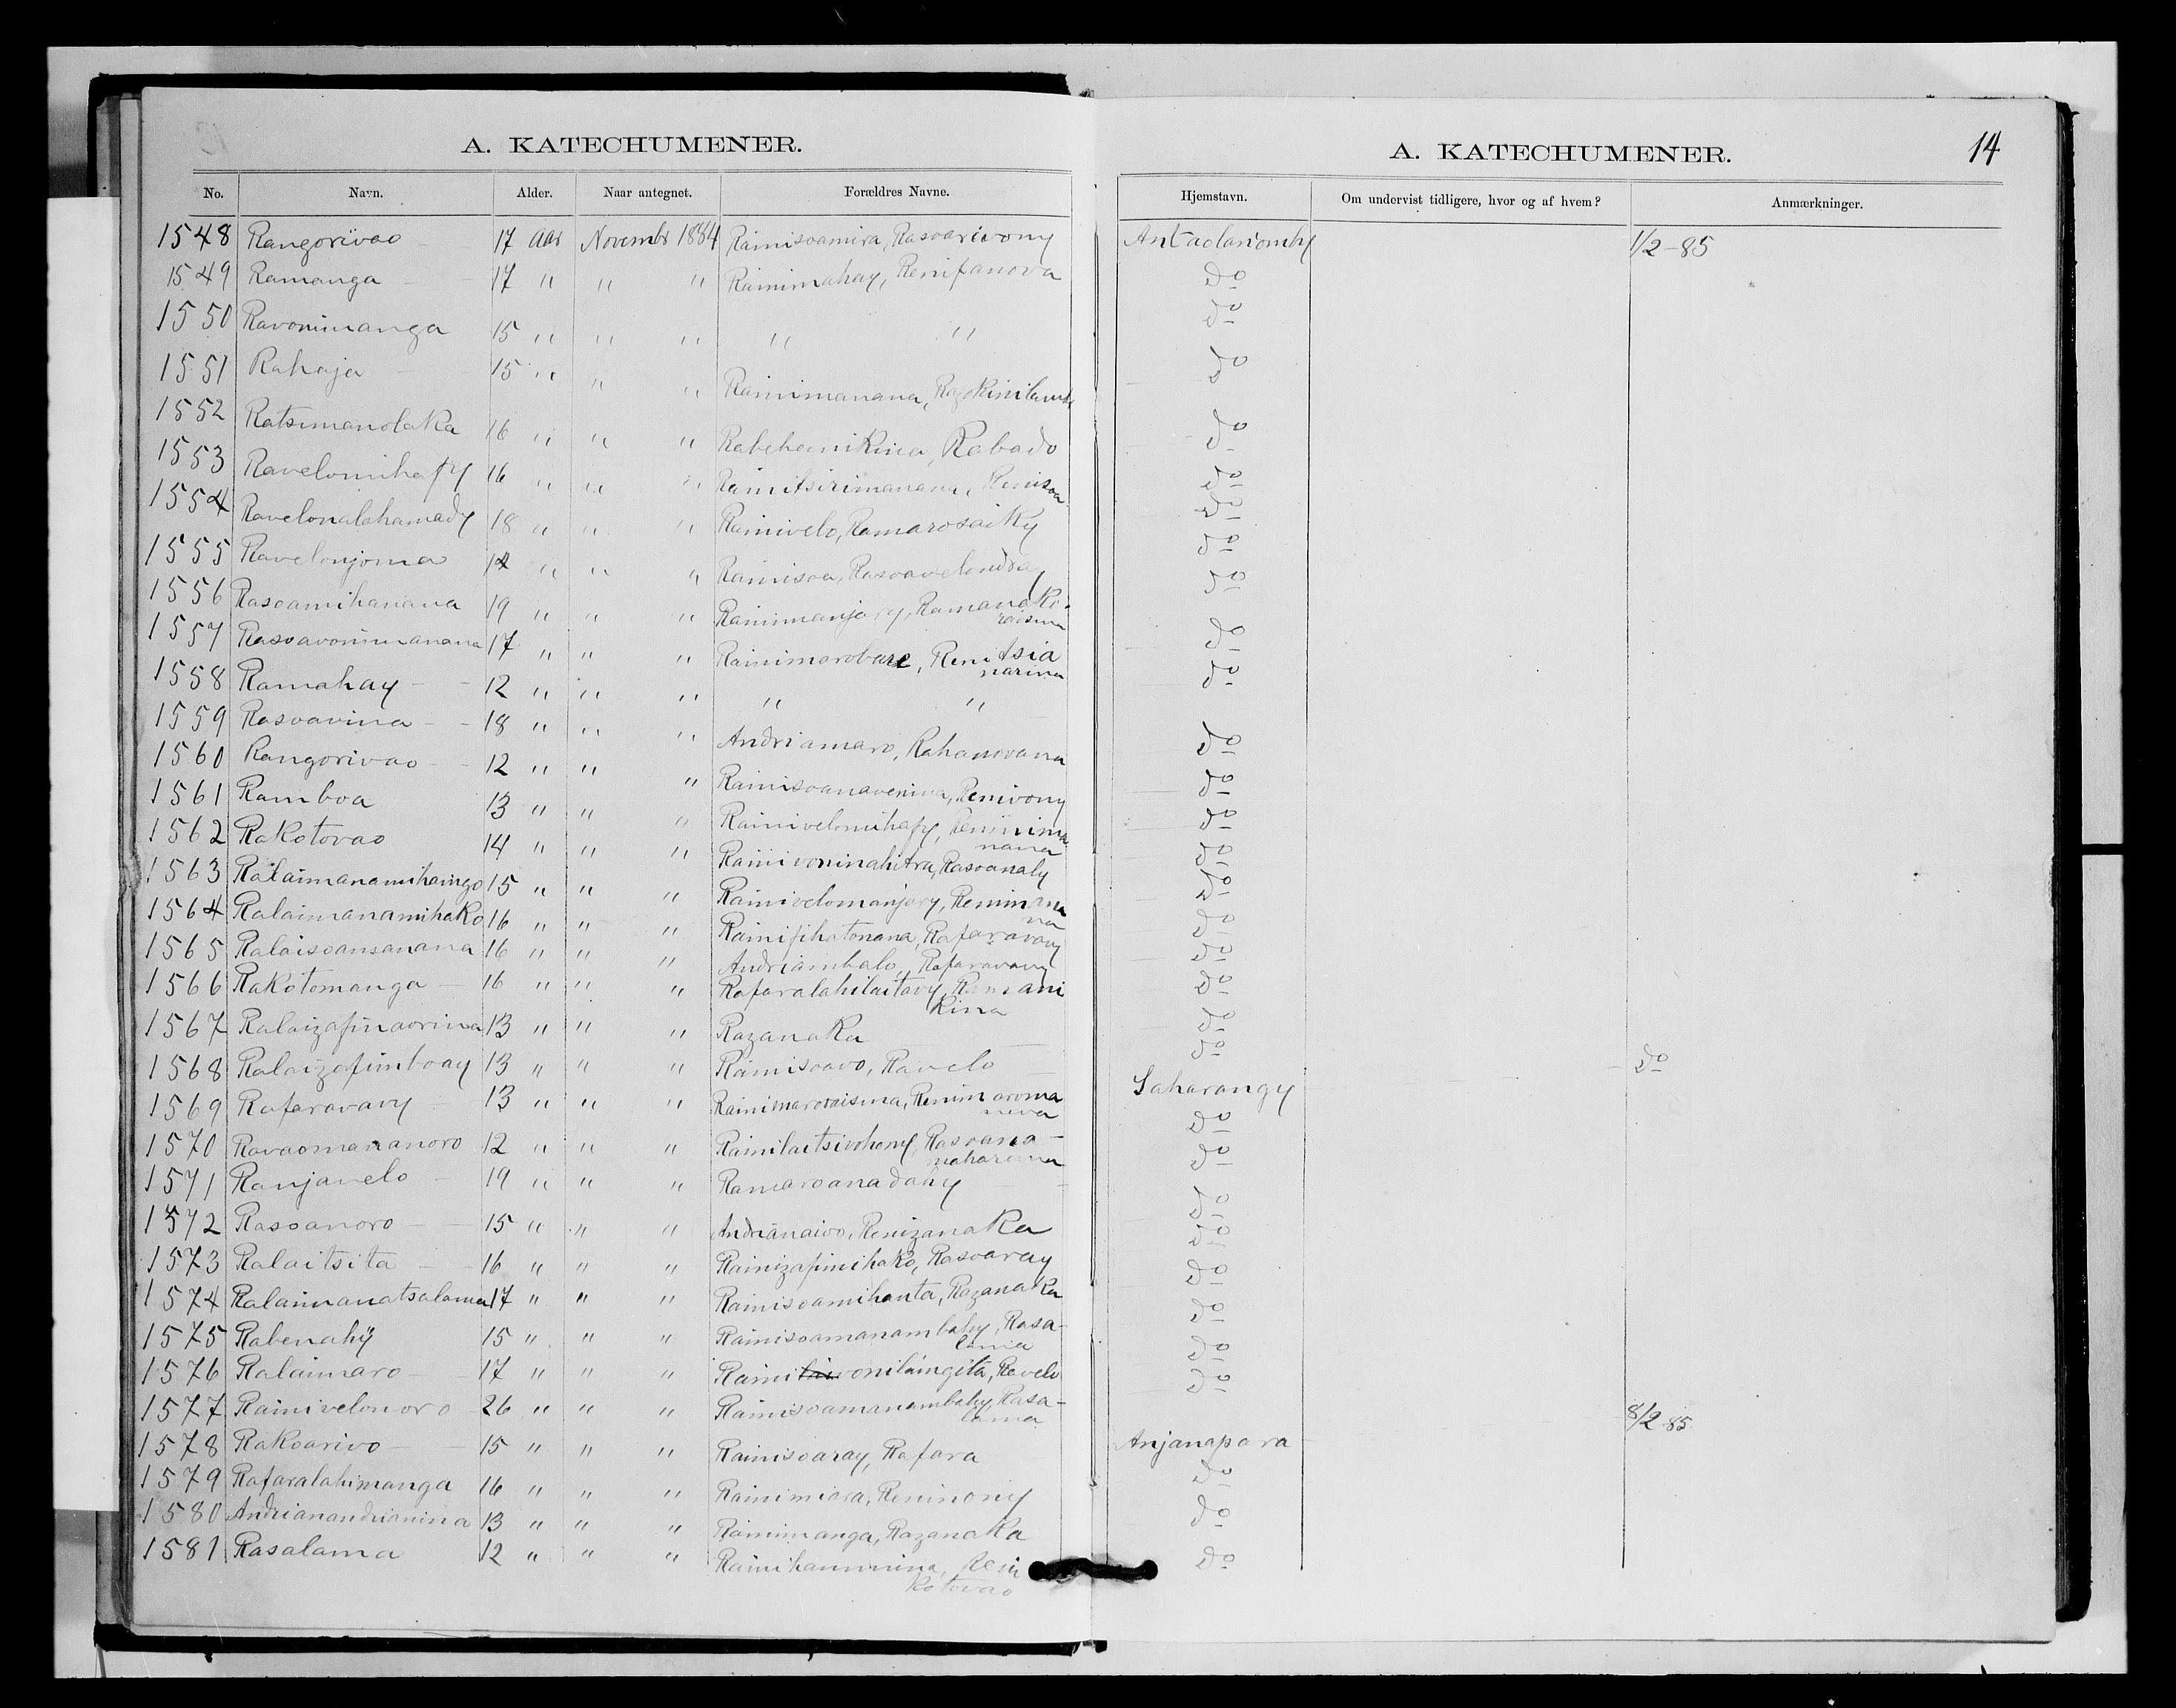 A. KATECHUMENER.
No. Navn. Alder. Naar antegnet. Forældres Navne.
1548 Rangorivao 17 Aar Novembr 1884 Rainisoamira, Rasoarivony
1549 Ramanga 17 " " " Rainimahay, Renifanova
1550 Ravonimanga 15 " " " " "
1551 Rahaja 15 " " " Rainimanana,
1552 Ratsimanolaka 16 " " " Rabehamikina, Rabado
1553 Ravelomihafy 16 " " " Rainitsirimanana, Renisoa
1554 Ravelonalahamady 18 " " " Rainivelo, Ramarosaiky
1555 Ravelonjoma 14 " " " Rainisoa, Rasoavelondray
1556 Rasoamihanana 19 " " " Rainimanjary, Ramanako-
raisina
1557 Rasoavonimanana 17 " " " Rainimarobare, Renitsia
narina
1558 Ramahay 12 " " " " "
1559 Rasoavina 18 " " " Andriamaro, Rahanovana
1560 Rangorivao 12 " " " Rainisoanavenina, Renivony
1561 Ramboa 13 " " " Rainivelomihafy, Renimima
nana
1562 Rakotovao 14 " " " Rainivoninahitra, Rasoanaly
1563 Ralaimanamihaingo 15 " " " Rainivelomanjary, Renimana
na
1564 Ralaimanamihako 16 " " " Rainifihatonana, Rafaravavy
1565 Ralaisoansanana 16 " " " Andriambalo, Rafaravavy
1566 Rakotomanga 16 " " " Rafaralahilaitavy, Ramani
kina
1567 Ralaizafinaorina 13 " " " Razanaka
1568 Ralaizafimboay 13 " " " Rainisoavo, Ravelo
1569 Rafaravavy 13 " " " Rainimaroraisina, Renimaroma
neva
1570 Ravaomaranoro 12 " " " Rainilaitsivohony, Rasoana-
maharavina
1571 Ranjavelo 19 " " " Ramaroanadahy
1572 Rasoanoro 15 " " " Andrianaivo, Renizanaka
1573 Ralaitsita 16 " " " Rainizafimihako, Rasoaray
1574 Ralaimanatsalama 17 " " " Rainisoamihanta, Razanaka
1575 Rabenahy 15 " " " Rainisoamanambahy, Rasa-
lama
1576 Ralaimaro 17 " " " Rainivonilaingita, Ravelo
1577 Rainivelonoro 26 " " " Rainisoamanambahy, Rasa-
lama
1578 Rakoarivo 15 " " " Rainisoaray, Rafara
1579 Rafaralahimanga 16 " " " Rainimiara, Reninony
1580 Andrianandrianina 13 " " " Rainimanga, Razanaka
1581 Rasalama 12 " " " Rainihaminina, Reni
kotovao
A. KATECHUMENER. 14
Hjemstavn. Om undervist tidligere, hvor og af hvem? Anmærkninger.
Antaolanomby 1/2-85
do
do
do
do
do
do
do
do
do
do
do
do
do
do
do
do
do
do
do
do do
Saharangy
do
do
do
do
do
do
do
do
8/2 85
Anjanapara
do
do
do